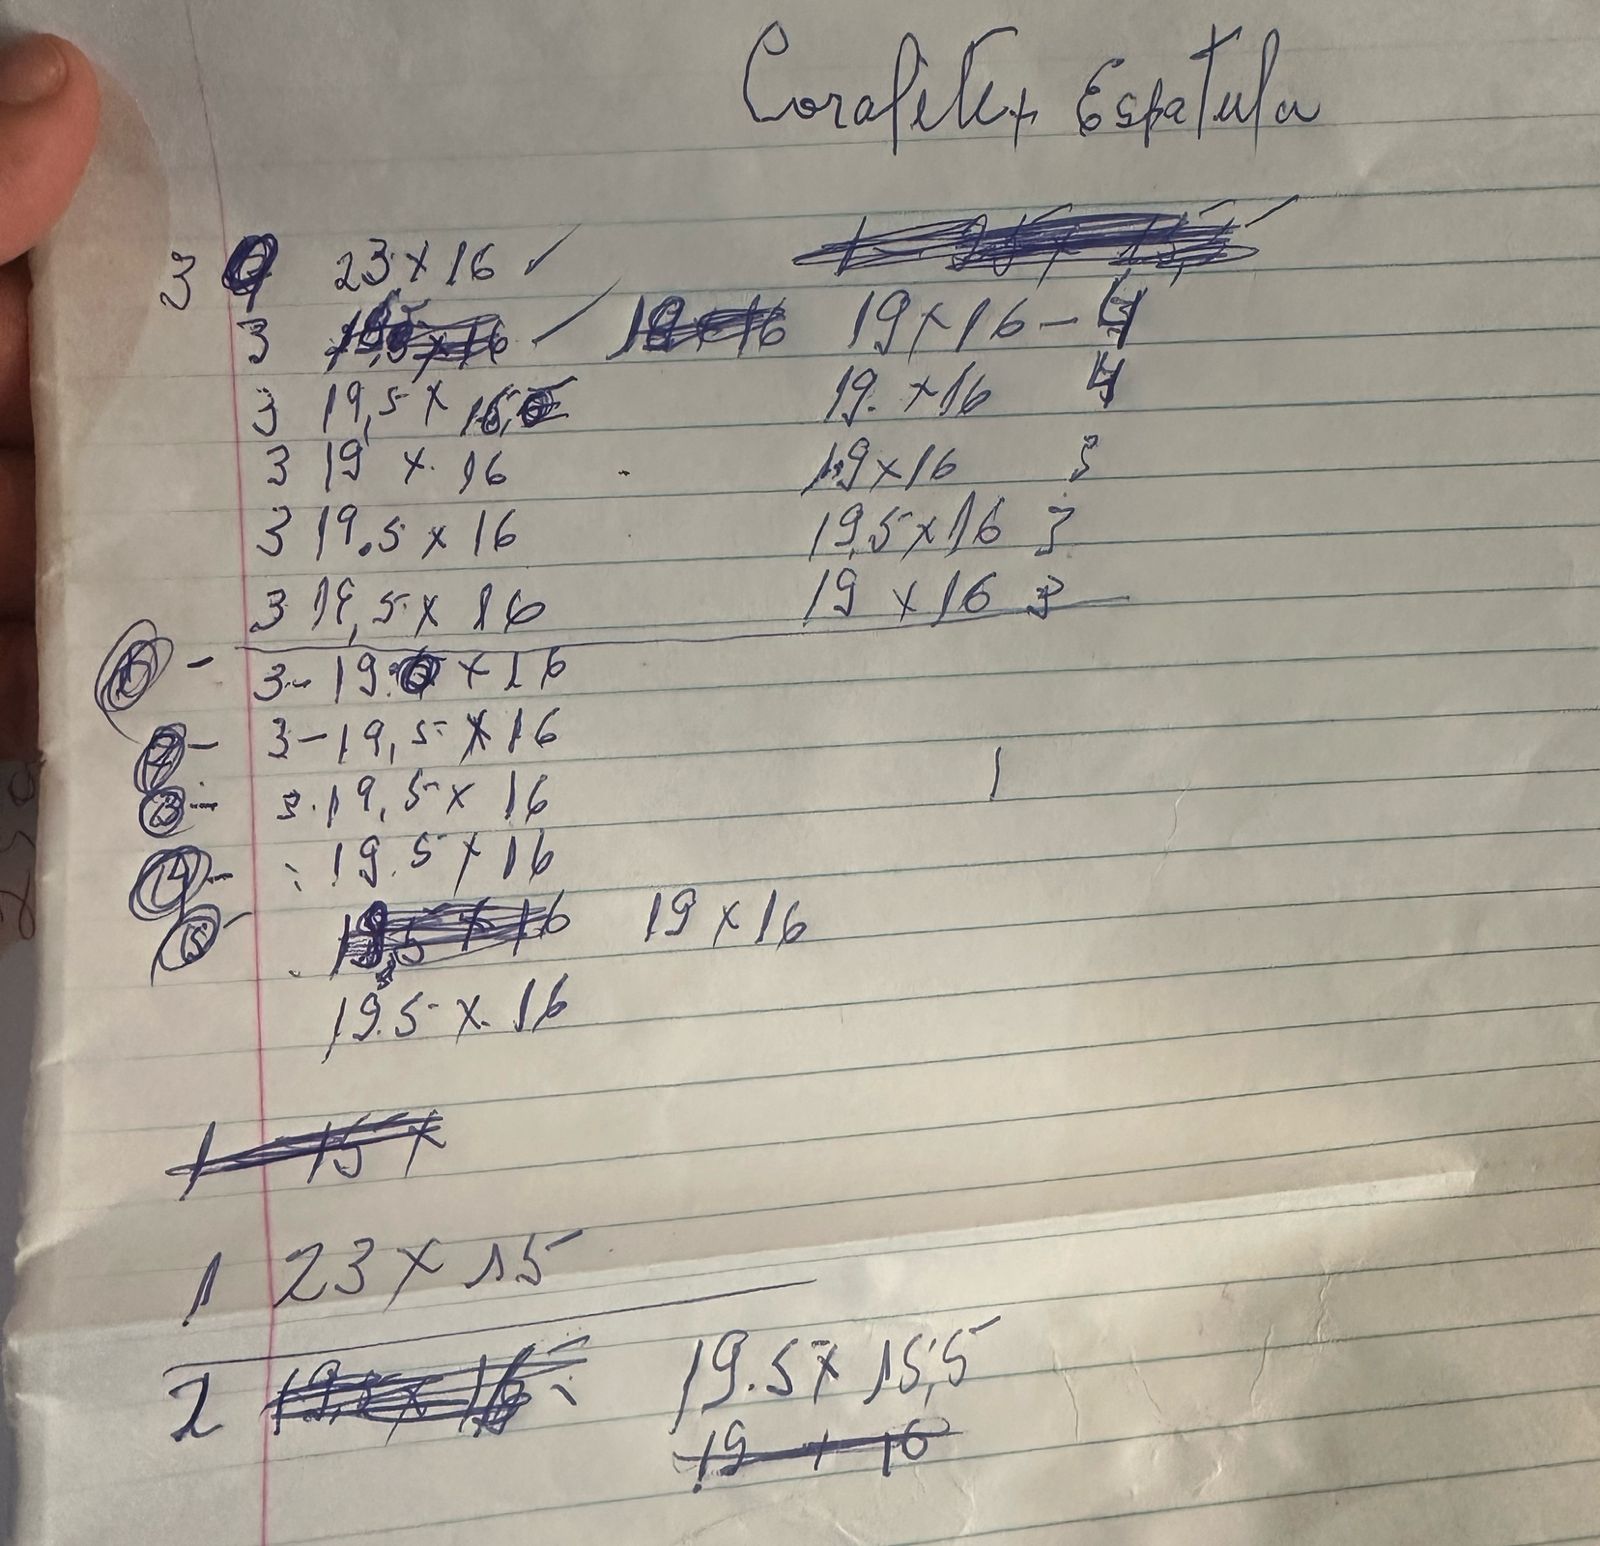 Espatula
3 23 x 16 ✓
3 19 x 16 - 4
3 19,5 x 16 19. x 16 4
3 19 x 16 19 x 16 3
3 19.5 x 16 19,5 x 16 3
3 19,5 x 16 19 x 16 3
3 - 19 x 16
2 - 3 - 19,5 x 16
3 - 3 19,5 x 16
4 - 19.5 x 16
5 - 19 x 16
19.5 x 16
1 15 x
1 23 x 15
2 19.5 x 15,5
19 x 16